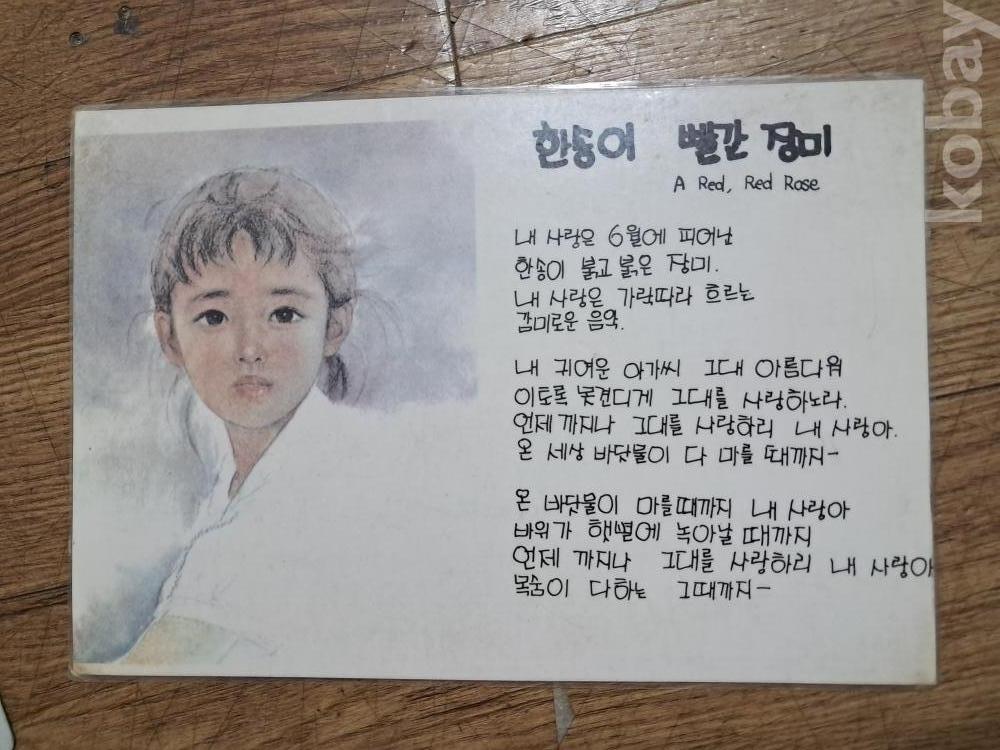 한송이 빨간 장미
A Red, Red Rose
내 사랑은 6월에 피어난
한송이 붉고 붉은 장미.
내 사랑은 가락따라 흐르는
감미로운 음악.
내 귀여운 아가씨 그대 아름다워
이토록 못견디게 그대를 사랑하노라.
언제 까지나 그대를 사랑하리 내 사랑아.
온 세상 바닷물이 다 마를 때까지-
온 바닷물이 마를때까지 내 사랑아
바위가 햇볕에 녹아날 때까지
언제 까지나 그대를 사랑하리 내 사랑아
목숨이 다하는 그때까지-
kobay